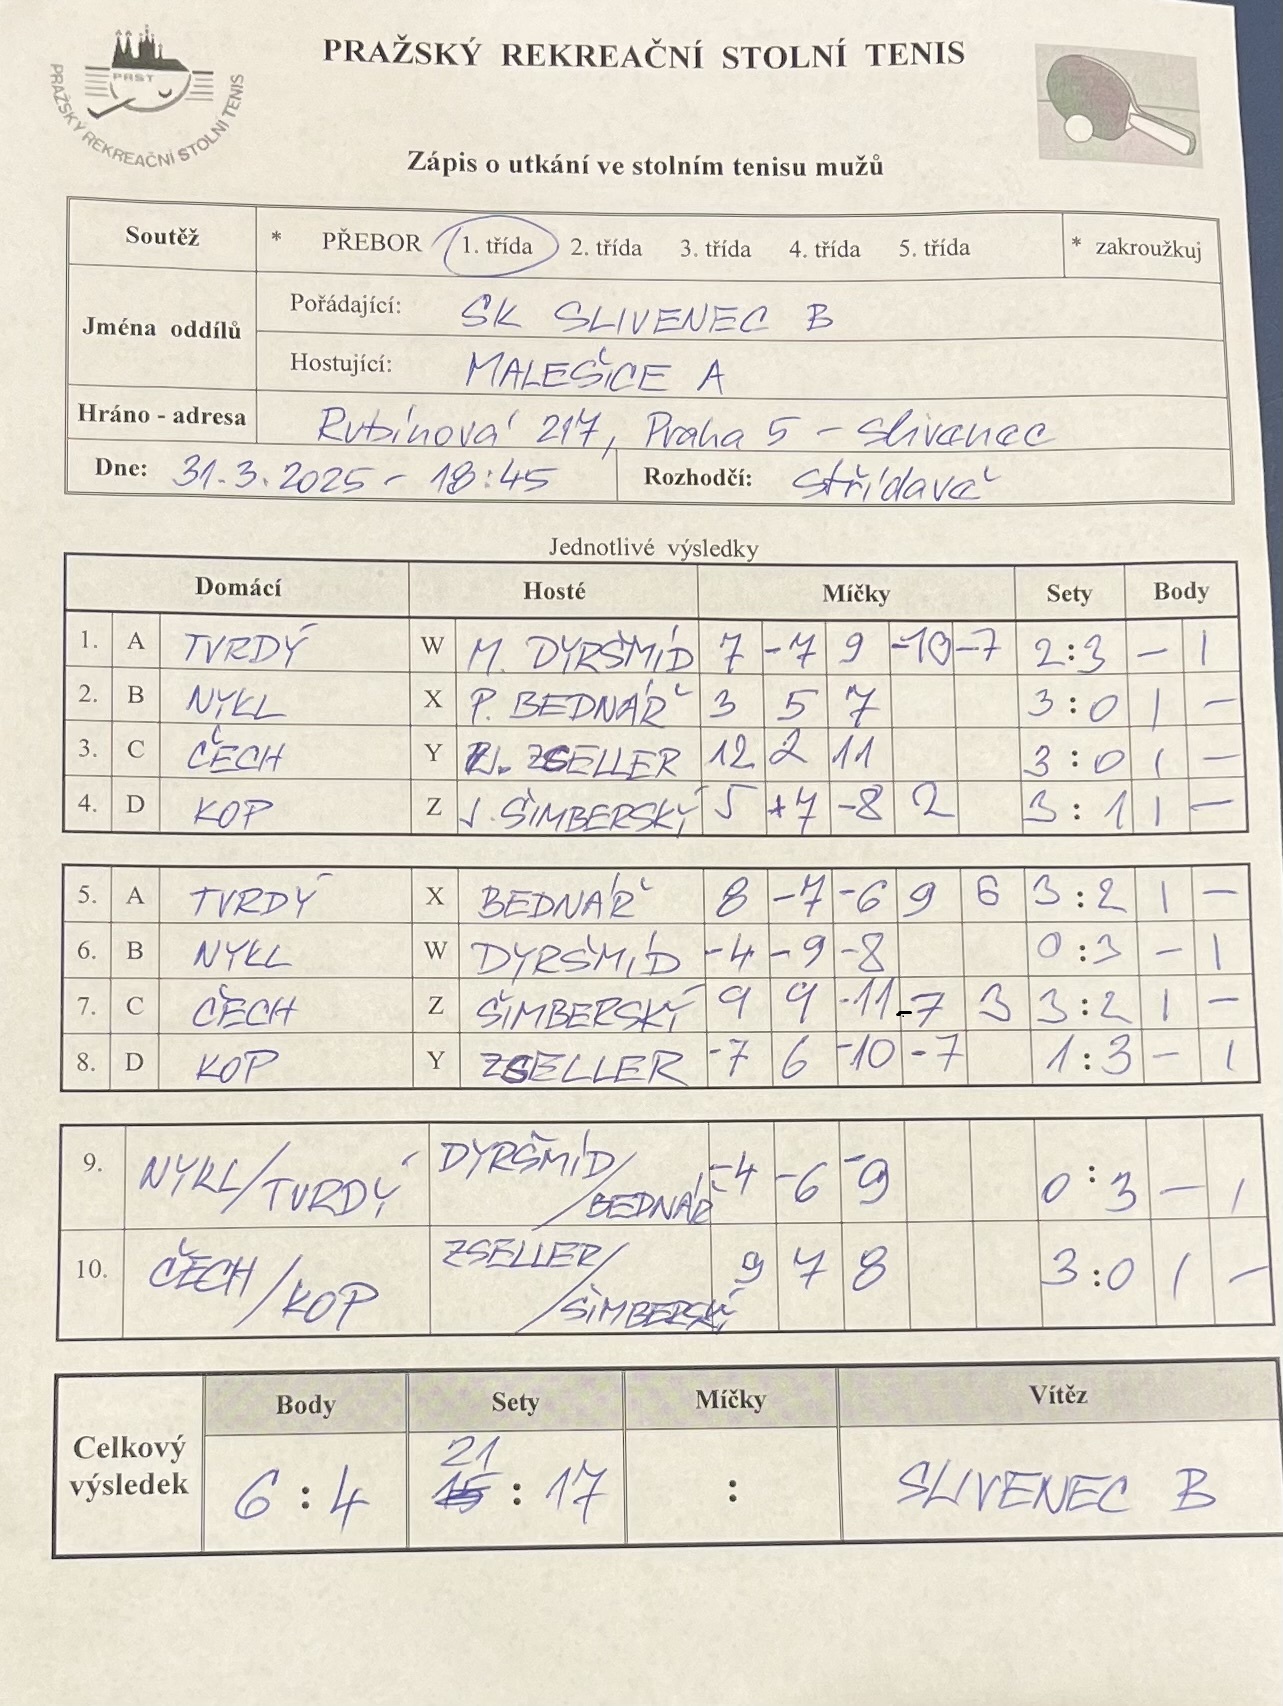 PRAŽSKÝ REKREAČNÍ STOLNÍ TENIS
PRST
PRAŽSKÝ REKREAČNÍ STOLNÍ TENIS
Zápis o utkání ve stolním tenisu mužů
Soutěž * PŘEBOR 1. třída 2. třída 3. třída 4. třída 5. třída * zakroužkuj
Jména oddílů
Pořádající: SK SLIVENEC B
Hostující: MALEŠICE A
Hráno - adresa Rubínová 217, Praha 5 - Slivenec
Dne: 31.3.2025 - 18:45 Rozhodčí: Střídavě
Jednotlivé výsledky
Domácí Hosté Míčky Sety Body
1. A TVRDÝ W M. DYRŠMÍD 7 -7 9 -10 -7 2:3 - 1
2. B NYKL X P. BEDNÁŘ 3 5 7 3:0 1 -
3. C ČECH Y ZSELLER 12 2 11 3:0 1 -
4. D KOP Z J. ŠIMBERSKÝ 5 +7 -8 2 3:1 1 -
5. A TVRDÝ X BEDNÁŘ 8 -7 -6 9 6 3:2 1 -
6. B NYKL W DYRŠMÍD -4 -9 -8 0:3 - 1
7. C ČECH Z ŠIMBERSKÝ 9 9 -11 -7 3 3:2 1 -
8. D KOP Y ZSELLER -7 6 -10 -7 1:3 - 1
9. NYKL/TVRDÝ DYRŠMÍD/BEDNÁŘ -4 -6 -9 0:3 - 1
10. ČECH/KOP ZSELLER/ŠIMBERSKÝ 9 7 8 3:0 1 -
Body Sety Míčky Vítěz
Celkový výsledek 6:4 21:17 : SLIVENEC B